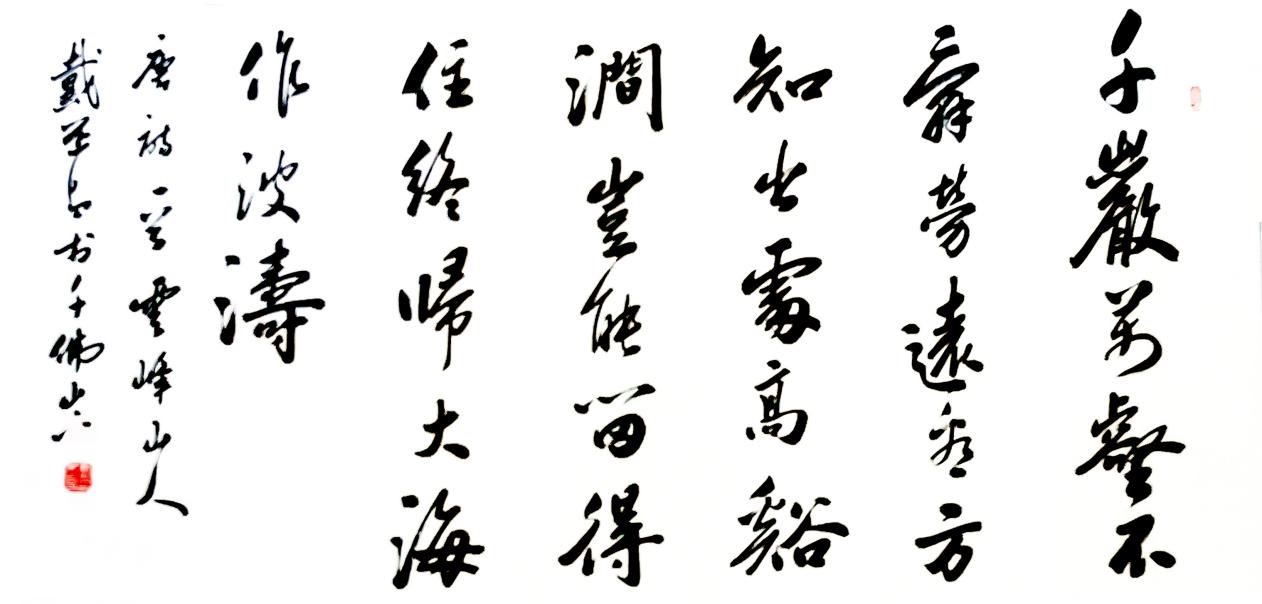 千巖萬壑不
辭勞遠看方
知出處高谿
澗豈能留得
住終歸大海
作波濤
唐詩一首雲峰山人
戴於千佛山下